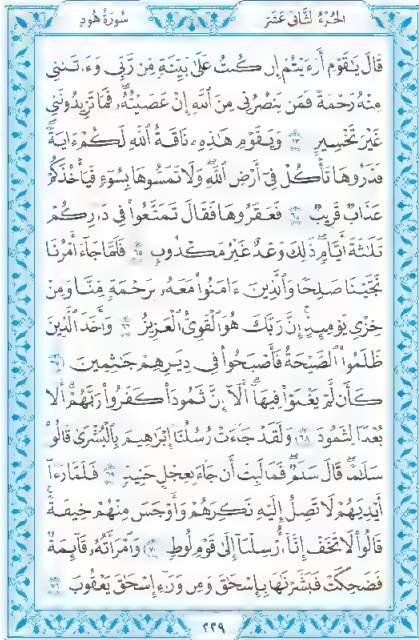 سُورَةُ هُودٍ
الجُزْءُ الثَّانِي عَشَرَ
قَالَ يَٰقَوْمِ أَرَءَيْتُمْ إِن كُنتُ عَلَىٰ بَيِّنَةٍ مِّن رَّبِّي وَءَاتَىٰنِي
مِنْهُ رَحْمَةً فَمَن يَنصُرُنِي مِنَ ٱللَّهِ إِنْ عَصَيْتُهُۥ فَمَا تَزِيدُونَنِي
غَيْرَ تَخْسِيرٍ ٦٣ وَيَٰقَوْمِ هَٰذِهِۦ نَاقَةُ ٱللَّهِ لَكُمْ ءَايَةً
فَذَرُوهَا تَأْكُلْ فِيٓ أَرْضِ ٱللَّهِ وَلَا تَمَسُّوهَا بِسُوٓءٍ فَيَأْخُذَكُمْ
عَذَابٌ قَرِيبٌ ٦٤ فَعَقَرُوهَا فَقَالَ تَمَتَّعُوا۟ فِي دَارِكُمْ
ثَلَٰثَةَ أَيَّامٍ ذَٰلِكَ وَعْدٌ غَيْرُ مَكْذُوبٍ ٦٥ فَلَمَّا جَآءَ أَمْرُنَا
نَجَّيْنَا صَٰلِحًا وَٱلَّذِينَ ءَامَنُوا۟ مَعَهُۥ بِرَحْمَةٍ مِّنَّا وَمِنْ
خِزْيِ يَوْمِئِذٍ إِنَّ رَبَّكَ هُوَ ٱلْقَوِيُّ ٱلْعَزِيزُ ٦٦ وَأَخَذَ ٱلَّذِينَ
ظَلَمُوا۟ ٱلصَّيْحَةُ فَأَصْبَحُوا۟ فِي دِيَٰرِهِمْ جَٰثِمِينَ ٦٧
كَأَن لَّمْ يَغْنَوْا۟ فِيهَآ أَلَآ إِنَّ ثَمُودَا۟ كَفَرُوا۟ رَبَّهُمْ أَلَا
بُعْدًا لِّثَمُودَ ٦٨ وَلَقَدْ جَآءَتْ رُسُلُنَآ إِبْرَٰهِيمَ بِٱلْبُشْرَىٰ قَالُوا۟
سَلَٰمًا قَالَ سَلَٰمٌ فَمَا لَبِثَ أَن جَآءَ بِعِجْلٍ حَنِيذٍ ٦٩ فَلَمَّا رَءَآ
أَيْدِيَهُمْ لَا تَصِلُ إِلَيْهِ نَكِرَهُمْ وَأَوْجَسَ مِنْهُمْ خِيفَةً
قَالُوا۟ لَا تَخَفْ إِنَّآ أُرْسِلْنَآ إِلَىٰ قَوْمِ لُوطٍ ٧٠ وَٱمْرَأَتُهُۥ قَآئِمَةٌ
فَضَحِكَتْ فَبَشَّرْنَٰهَا بِإِسْحَٰقَ وَمِن وَرَآءِ إِسْحَٰقَ يَعْقُوبَ ٧١
٢٢٩